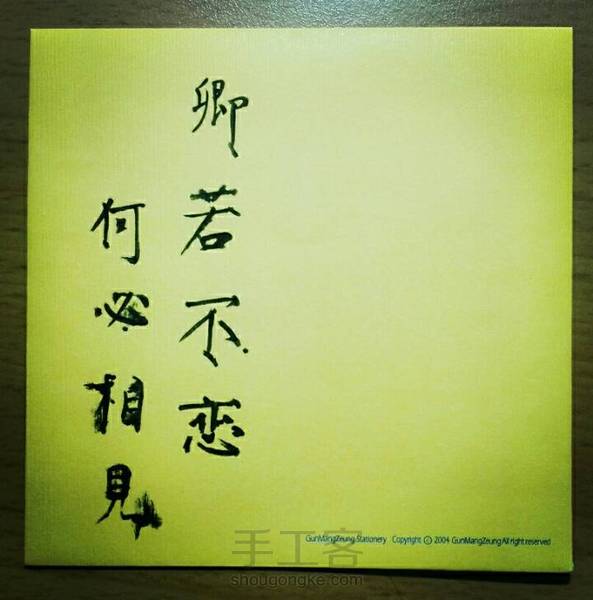 卿若不恋
何必相見
GunMangZeung Stationery Copyright ⓒ 2004 GunMangZeung All right reserved
手工客
shougongke.com